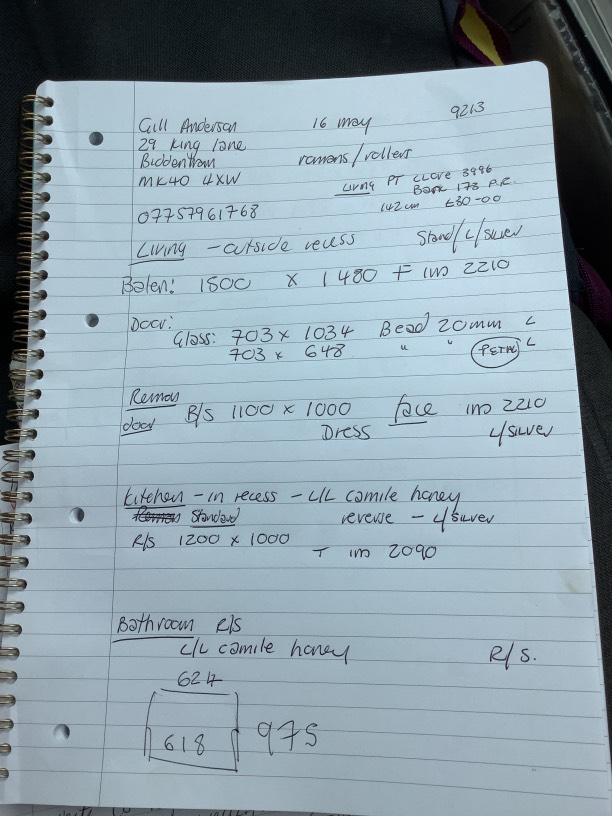 Gill Anderson 16 may 9213
29 King Lane
Biddenham romans/rollers
MK40 4XW
Living PT CLOVE 3996
Bark 173 P.R.
07757961768 142cm £30-00
Living - outside recess Stand/L/Silver
1800 x 1480 F 2210
Door:
Glass: 703 x 1034 Bead 20mm L
703 x 648 " " L
Roman
door B/S 1100 x 1000 face 2210
Dress L/SILVER
Kitchen - in recess - L/L camile honey
Roman Standard reverse - L/SILVER
R/S 1200 x 1000
T 2090
Bathroom R/S
L/L camile honey R/S.
624
618 975